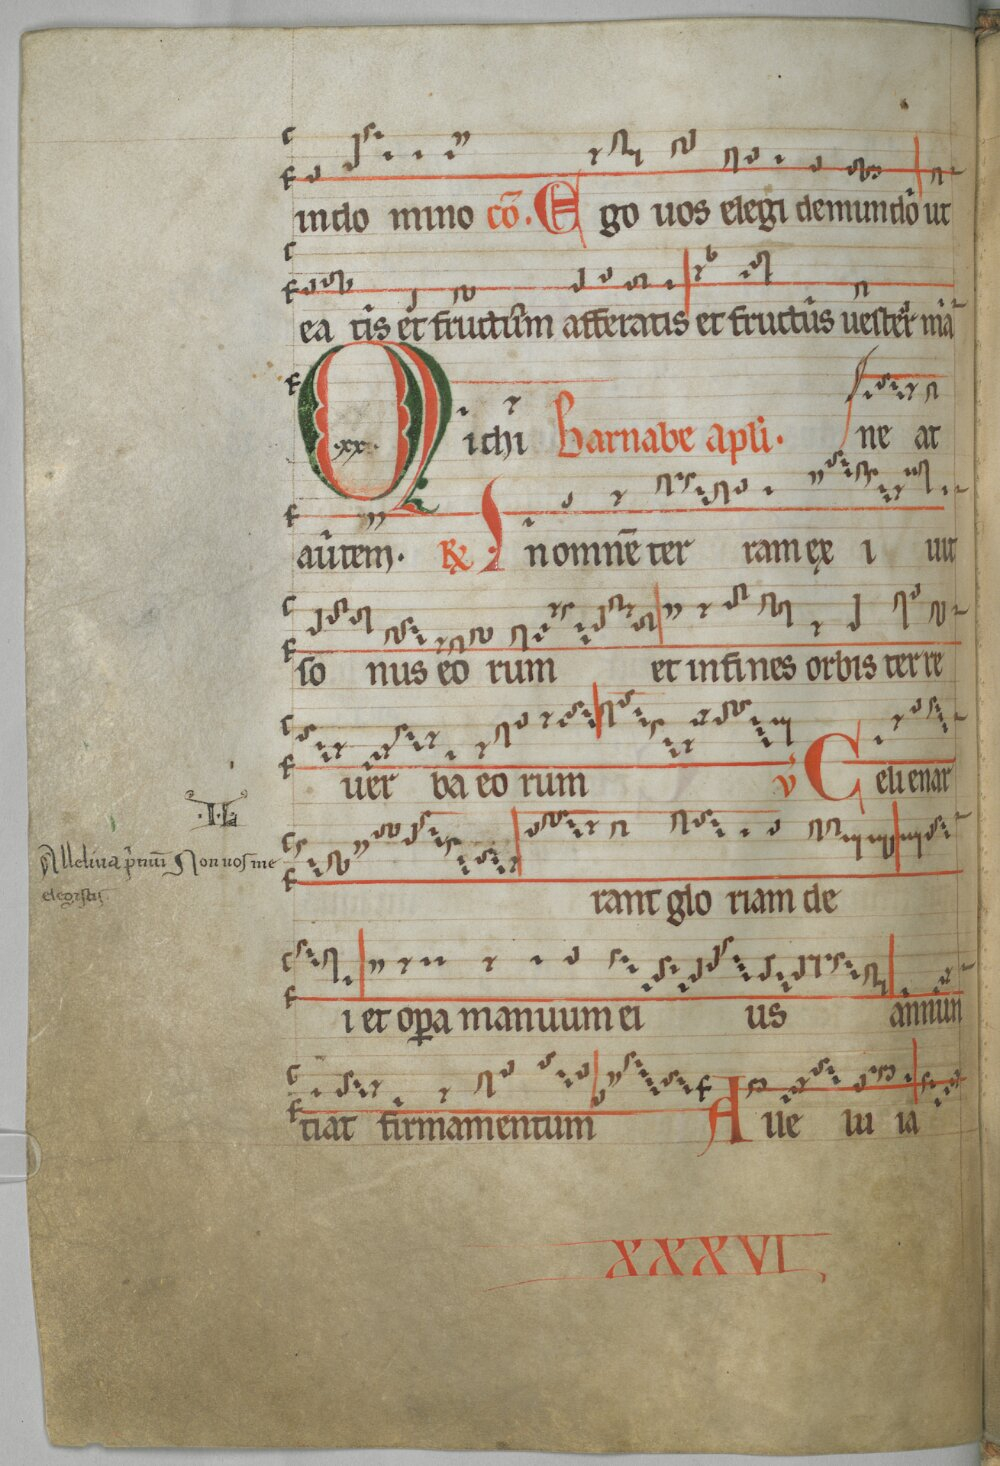 in do mino cō. Ego uos elegi demundo ut
ea tis et fructum afferatis et fructus uester ma
·xx·
Michi Barnabe apłi. ne at
autem. R̷ In omnē ter ram ex i uit
so nus eo rum et in fines orbis terre
uer ba eo rum v̇ Celi enar
rant glo riam de
Alleluia p̄mū Non uos me
elegistis
i et opa manuum ei us annun
tiat firmamentum Aue lu ia
XXXVI